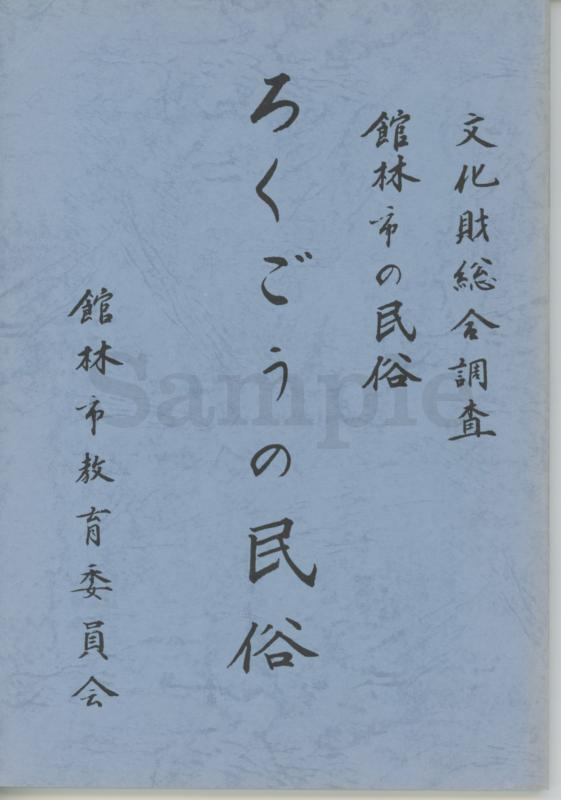 文化財総合調査
館林市の民俗
ろくごうの民俗
館林市教育委員会
Sample